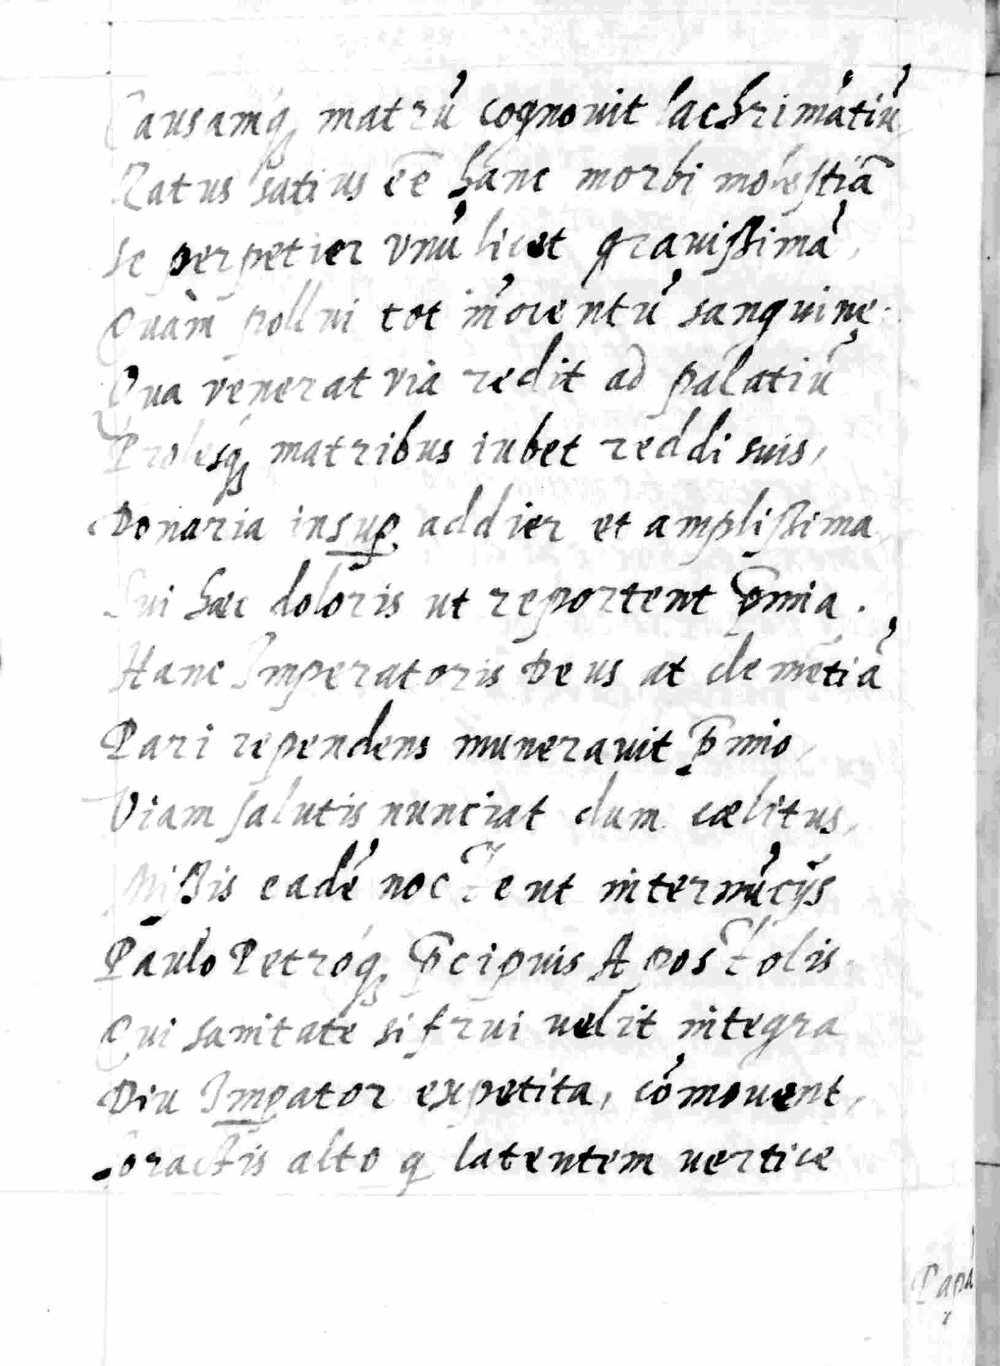 Causamq́ꝫ matrũ cognouit lachrimãtiũ,
Ratus satius eẽ hanc morbi molestiã
Se perpetier vnũ licet grauißimã,
Quàm pollui tot ĩnocentũ sanguine.
Qua venerat via redit ad palatiũ
Prolesq́ꝫ matribus iubet reddi suis,
Donaria insuꝑ addier et amplißima
Sui hæc doloris ut reportent p̃mia.
Hanc Imperatoris Deus at clemẽtiã
Pari rependens munerauit p̃mio,
Viam salutis nunciat dum cælitus,
Mißis eadẽ nocte ut internũcijs
Paulo Petroq́ꝫ p̃cipuis Apostolis.
Qui sanitate si frui uelit integra
Diu Imꝑator expetita, cõmouent,
Soractis alto q̃ latentem uertice
Papã